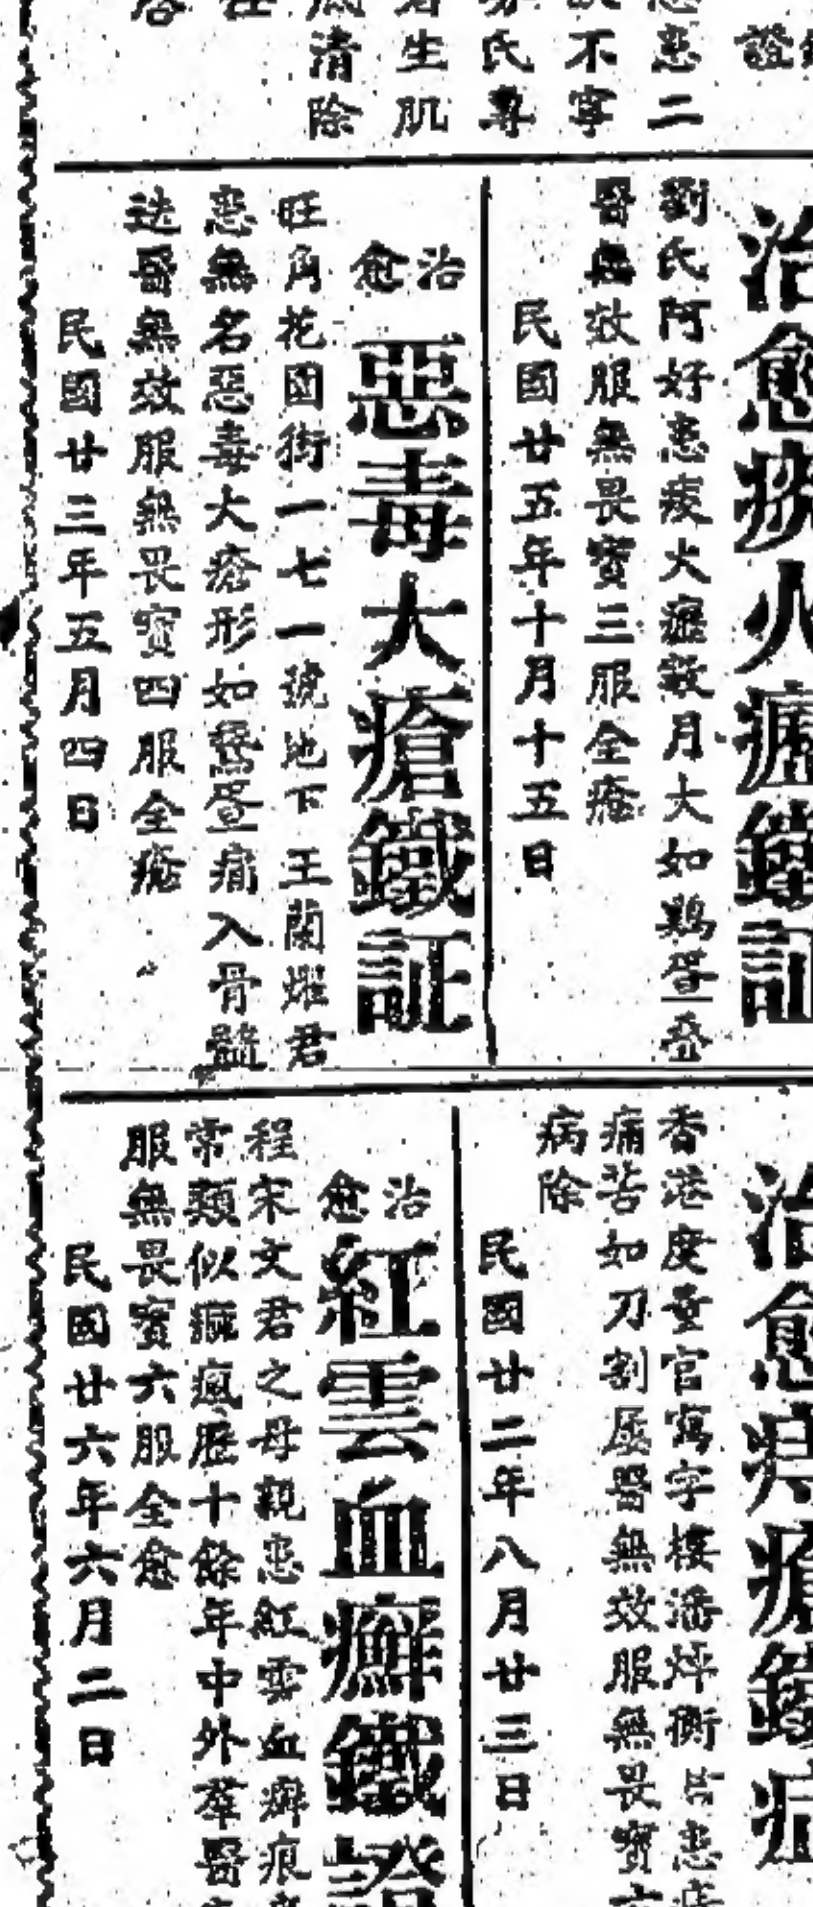 證
患二
不寧
氏專
生肌
清除
治愈痰火癧鐵証
劉氏阿好患痰火癧數月大如鷄蛋一叠
醫無效服無畏寶三服全瘉
民國廿五年十月十五日
治愈
惡毒大瘡鐵証
旺角花園街一七一號地下王蘭燿君
患無名惡毒大瘡形如鵞蛋痛入骨髓
迭醫無效服無畏寶四服全瘉
民國廿三年五月四日
治愈痔瘡鐵証
香港度量官寫字樓潘炳衡君患痔
痛苦如刀割屢醫無效服無畏寶
病除
民國廿二年八月廿三日
治愈
紅雲血癬鐵證
程宋文君之母親患紅雲血癬痕
常類似癲瘋歷十餘年中外羣醫
服無畏寶六服全愈
民國廿六年六月二日